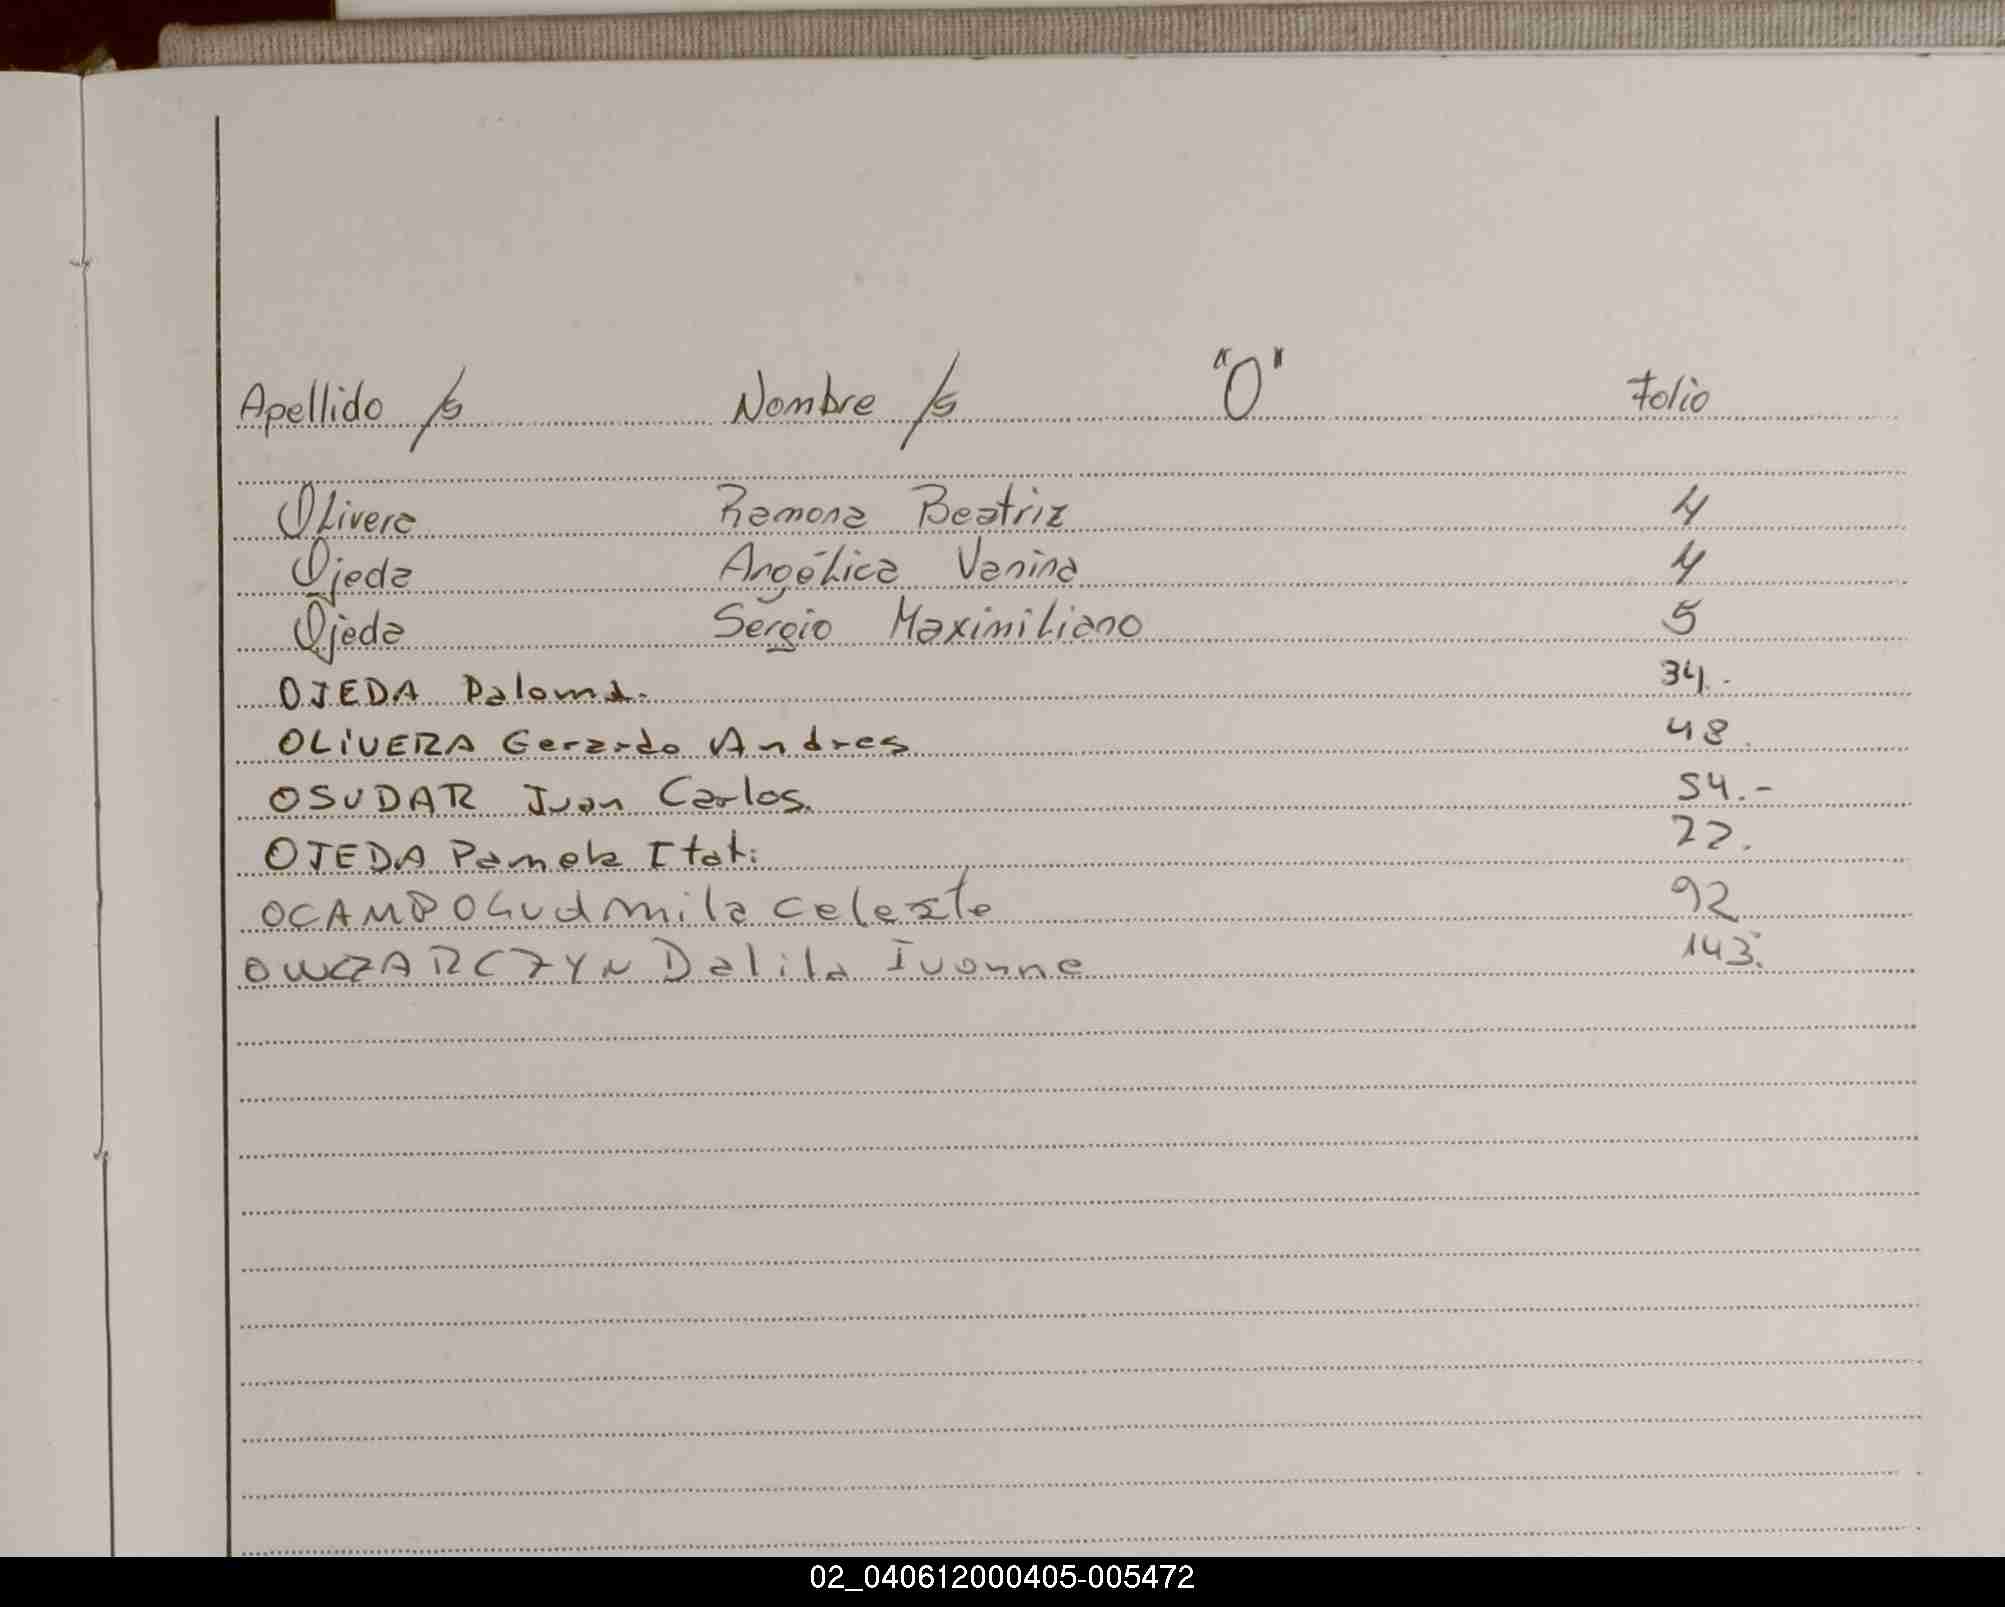 Apellido /s Nombre /s "O" Folio
Olivera Ramona Beatriz 4
Ojeda Angélica Vanina 4
Ojeda Sergio Maximiliano 5
OJEDA Paloma. 34.-
OLIVERA Gerardo Andres 48.
OSUDAR Juan Carlos. 54.-
OJEDA Pamela Itati 22.
OCAMPO Ludmila Celeste 92
OWCZARCZYN Dalila Ivonne 143.
02_040612000405-005472